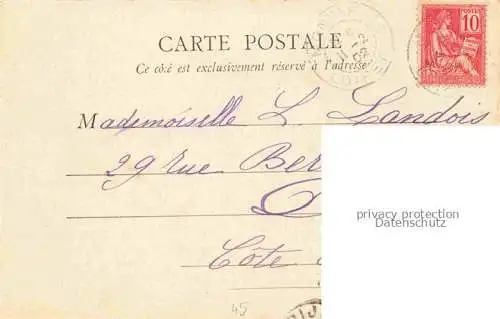 CARTE POSTALE
Ce côté est exclusivement réservé à l'adresse
POSTES
10
Mademoiselle L. Landois
29 rue Ber
D
Côte
privacy protection
Datenschutz
45